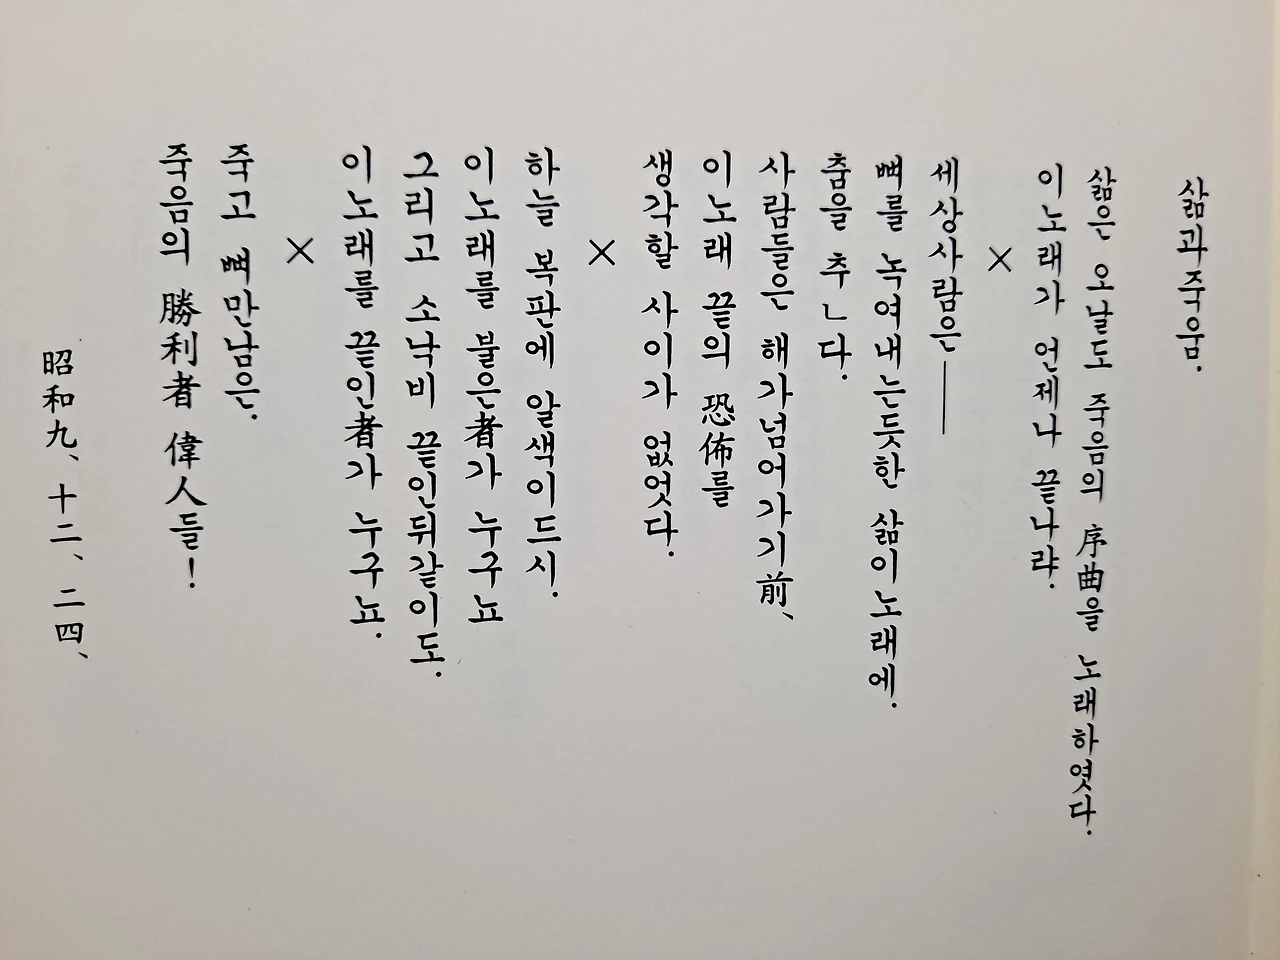 삶과죽움.
삶은 오날도 죽음의 序曲을 노래하엿다.
이노래가 언제나 끝나랴.
×
세상사람은――
뼈를 녹여내는듯한 삶이노래에.
춤을 추ㄴ다.
사람들은 해가넘어가기前、
이노래 끝의 恐怖를
생각할 사이가 없엇다.
×
하늘 복판에 알색이드시.
이노래를 불은者가 누구뇨
그리고 소낙비 끝인뒤같이도.
이노래를 끝인者가 누구뇨.
×
죽고 뼈만남은.
죽음의 勝利者 偉人들!
昭和九、十二、二四、